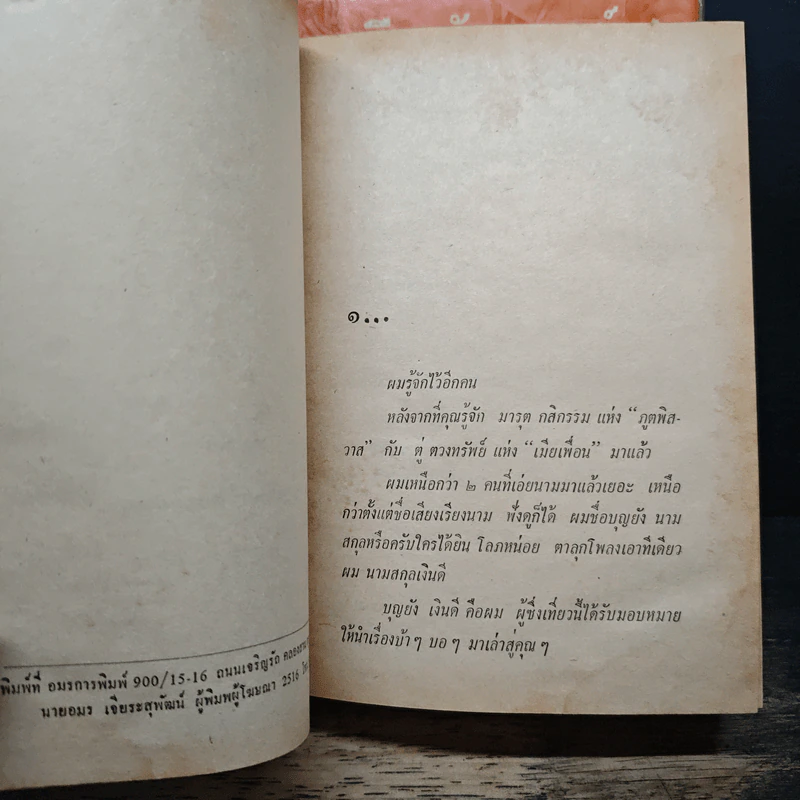 พิมพ์ที่ อมรการพิมพ์ 900/15-16 ถนนเจริญรัถ
นายอมร เจียระสุพัฒน์ ผู้พิมพ์ผู้โฆษณา 2516
๑...
ผมรู้จักไว้อีกคน
หลังจากที่คุณรู้จัก มารุต กสิกรรม แห่ง “ภูตพิส-
วาส” กับ ตู่ ตวงทรัพย์ แห่ง “เมียเพื่อน” มาแล้ว
ผมเหนือกว่า ๒ คนที่เอ่ยนามมาแล้วเยอะ เหนือ
กว่าตั้งแต่ชื่อเสียงเรียงนาม ฟังดูก็ได้ ผมชื่อบุญยัง นาม
สกุลหรือครับใครได้ยิน โลภหน่อย ตาลุกโพลงเอาทีเดียว
ผม นามสกุลเงินดี
บุญยัง เงินดี คือผม ผู้ซึ่งเที่ยวนี้ได้รับมอบหมาย
ให้นำเรื่องบ้า ๆ บอ ๆ มาเล่าสู่คุณ ๆ